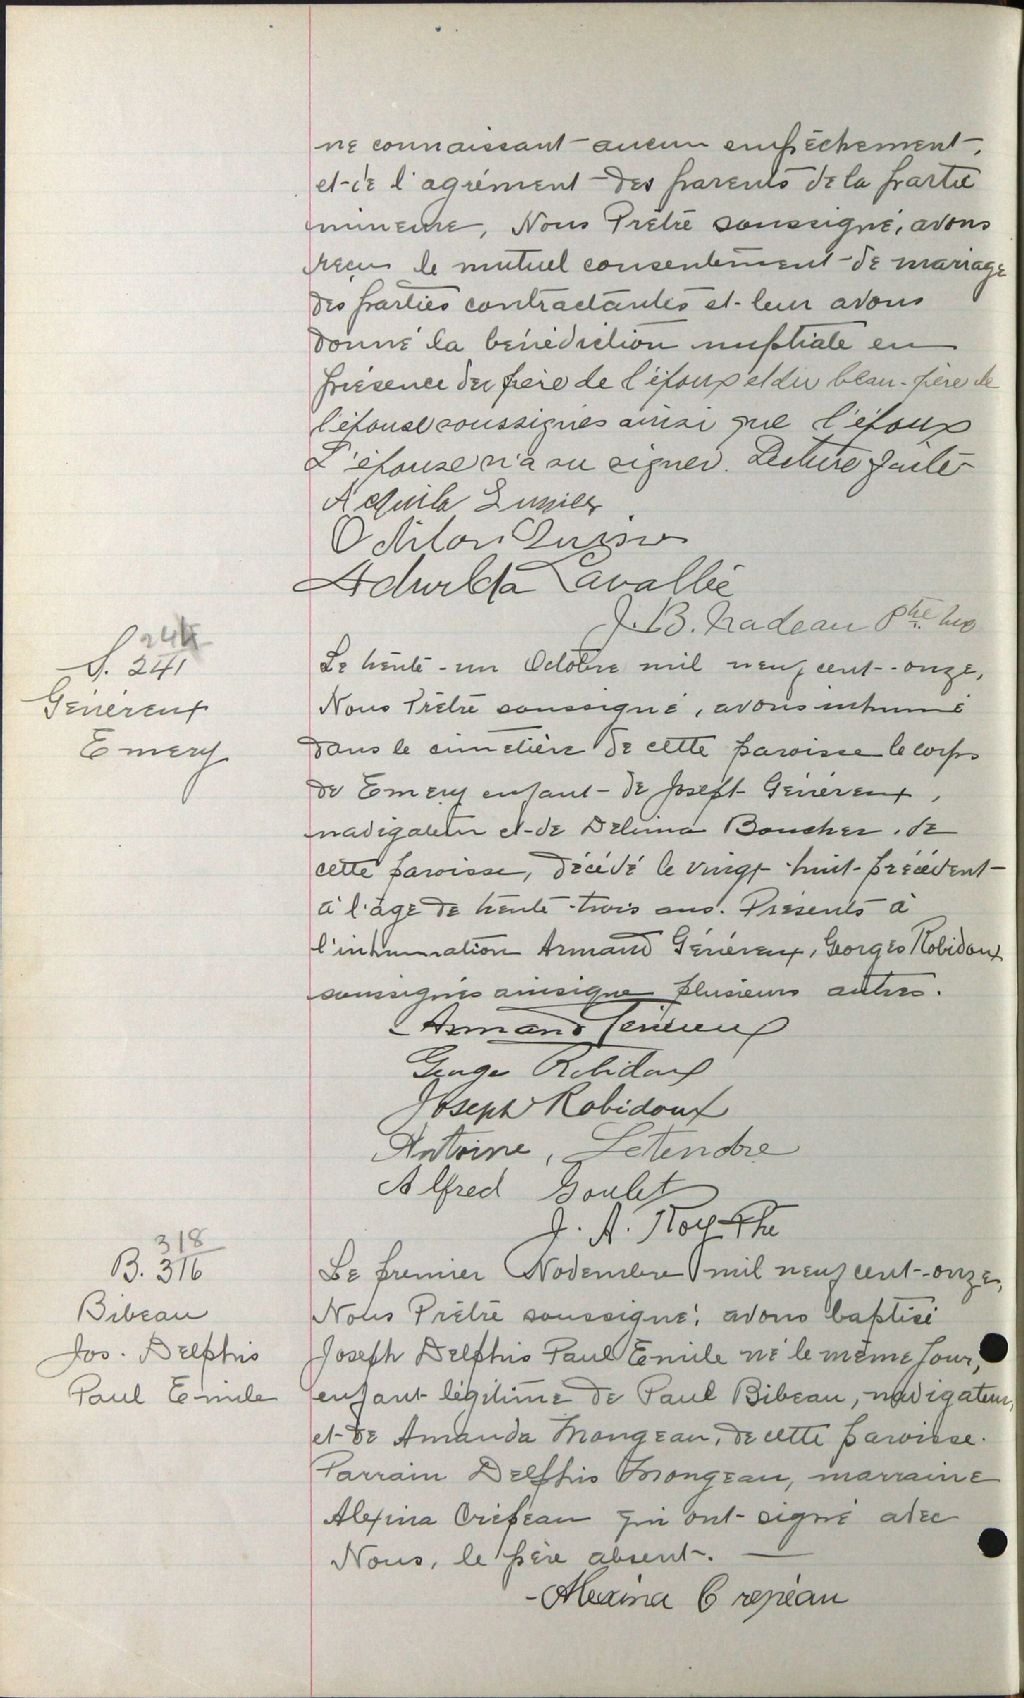 ne connaissant aucun empêchement,
et de l'agrément des parents de la partie
mineure, Nous Prêtre soussigné, avons
reçu le mutuel consentement de mariage
des parties contractantes et leur avons
donné la bénédiction nuptiale en
présence du père de l'époux et du beau-père de
l'épouse soussignés ainsi que l'époux
L'épouse n'a su signer. Lecture faite
Aquila
Odilon
Lavallée
J. B. Nadeau Ptre
S. 241
Généreux
Emery
Le trente-un Octobre mil neuf cent-onze,
Nous Prêtre soussigné, avons inhumé
dans le cimetière de cette paroisse le corps
de Emery enfant de Joseph Généreux,
navigateur et de Delima Boucher, de
cette paroisse, décédé le vingt-huit précédent
à l'âge de trente-trois ans. Présents à
l'inhumation Armand Généreux, Georges Robidoux
soussignés ainsi que plusieurs autres.
Armand Généreux
George Robidoux
Joseph Robidoux
Antoine, Letendre
Alfred Goulet
J. A. Roy Ptre
318
B. 316
Bibeau
Jos. Delphis
Paul Emile
Le premier Novembre mil neuf cent-onze,
Nous Prêtre soussigné, avons baptisé
Joseph Delphis Paul Emile né le même jour,
enfant légitime de Paul Bibeau, navigateur,
et de Amanda Mongeau, de cette paroisse.
Parrain Delphis Mongeau, marraine
Alexina Crépeau qui ont signé avec
Nous, le père absent. —
-Alexina Crepéau